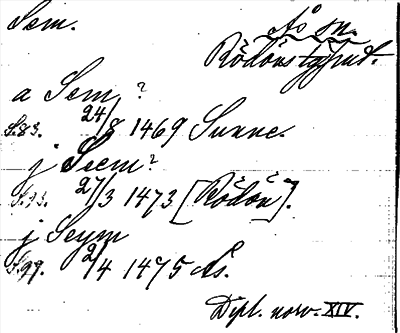 Sem.
Ås sn.
Rödöns tgsrud.
a Sem ?
S.83. 24/8 1469 Sunne.
j Seem ?
S.93. 27/3 1473 [Rödön].
j Seym
S.99. 2/4 1475 Ås.
Dipl. norv. XIV.